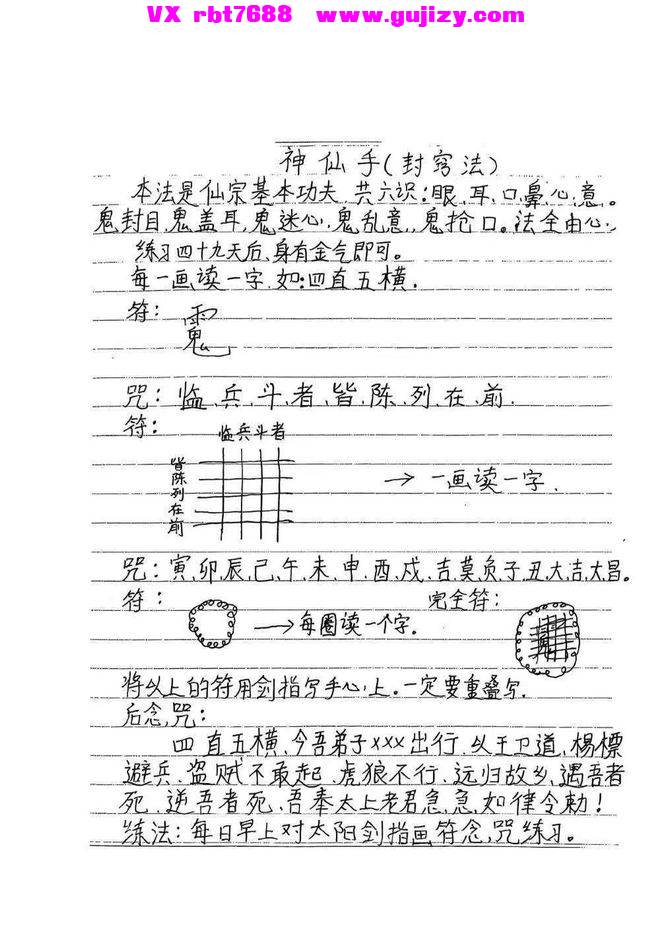 VX rbt7688 www.gujizy.com
神仙手(封窍法)
本法是仙宗基本功夫.共六识:眼、耳、口、鼻、心、意。
鬼封目、鬼盖耳、鬼迷心、鬼乱意,鬼抢口。法全由心,
练习四十九天后、身有金气即可。
每一画读一字.如:四直五横.
符:
咒:临、兵、斗、者、皆、陈、列、在、前.
符:
临兵斗者
皆
陈
列
在
前
→ 一画读一字.
咒:寅、卯、辰、己、午、未、申、酉、戍、吉、莫、负、子、丑、大、吉、大昌。
符:
→ 每圈读一个字.
完全符:
将以上的符用剑指写手心上。一定要重叠写.
后念咒:
四直五横、今吾弟子xxx出行、以王卫道、杨標
避兵、盗贼不最起、虎狼不行、远归故乡、遇吾者
死、逆吾者死、吾奉太上老君急急如律令勅!
练法:每日早上对太阳剑指画符念咒练习。